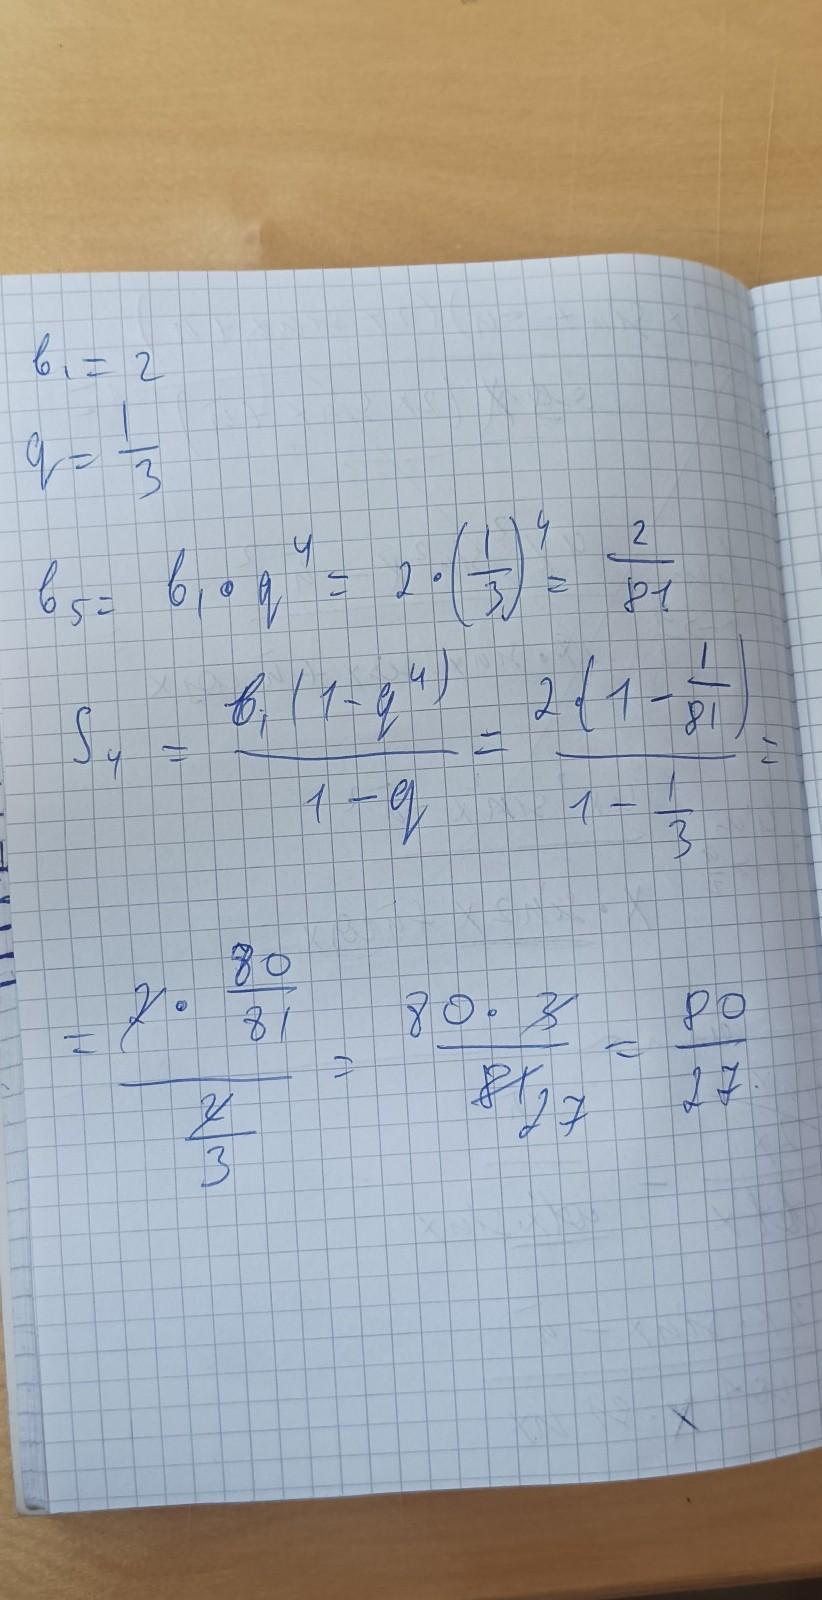 b₁ = 2
q = 1/3
b₅ = b₁ • q⁴ = 2 • (1/3)⁴ = 2/81
S₄ = b₁(1-q⁴)/(1-q) = 2·(1 - 1/81)/(1 - 1/3) =
= (2 • 80/81)/(2/3) = (80 • 3)/81 27 = 80/27.